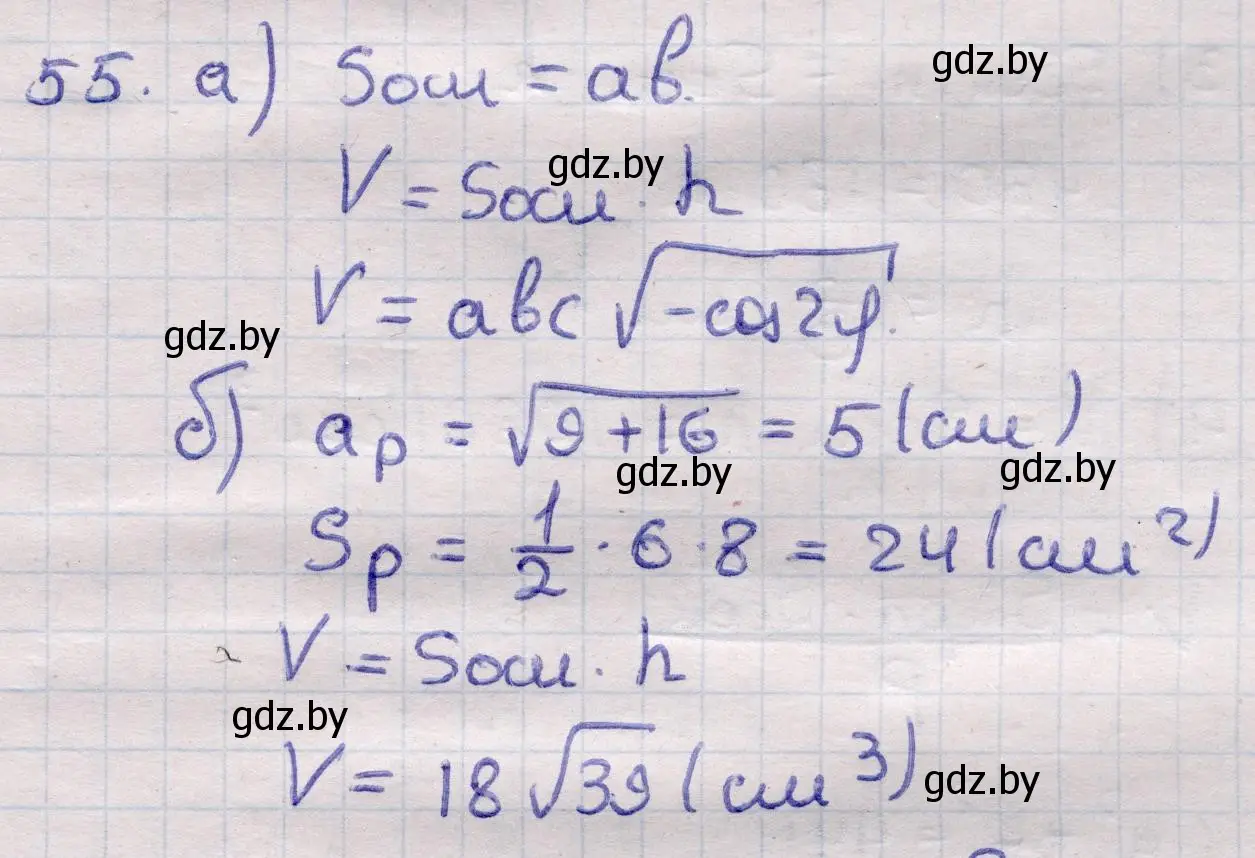 55. а) Sосн = ab. gdz.by
gdz.by
V = Sосн · h
V = abc √(-cos2φ).
gdz.by
б) aр = √(9+16) = 5 (см)
gdz.by gdz.by
Sр = 1/2 · 6 · 8 = 24 (см²)
V = Sосн · h
gdz.by
V = 18√39 (см³) gdz.by